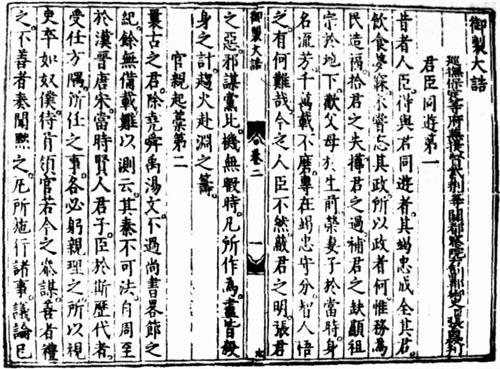 御製大誥
巡撫保定等府
君臣同遊第一
昔者人臣得與君同遊者其竭忠成全其君
飲食夢寐未嘗忘其政所以政者何惟務為
民造福拾君之失撙君之過補君之缺顯祖
宗於地下歡父母於生前榮妻子於當時身
名流芳千萬載不磨專在竭忠守分智人悟
之有何難哉今之人臣不然蔽君之明張君
御製大誥 卷二 一
之惡邪謀黨比機無暇時凡所作為盡皆殺
身之計趨火赴淵之籌
官親起藁第二
曩古之君除堯舜禹湯文不過尚書畧節之
紀餘無備載難以測云其秦不可法自周至
於漢晉唐宋當時賢人君子臣於斯歷代者
受任方隅所任之事各必躬親理之所以視
吏卒如奴僕待首領官若今之參謀善者禮
之不善者奏聞黜之凡所施行諸事議論已